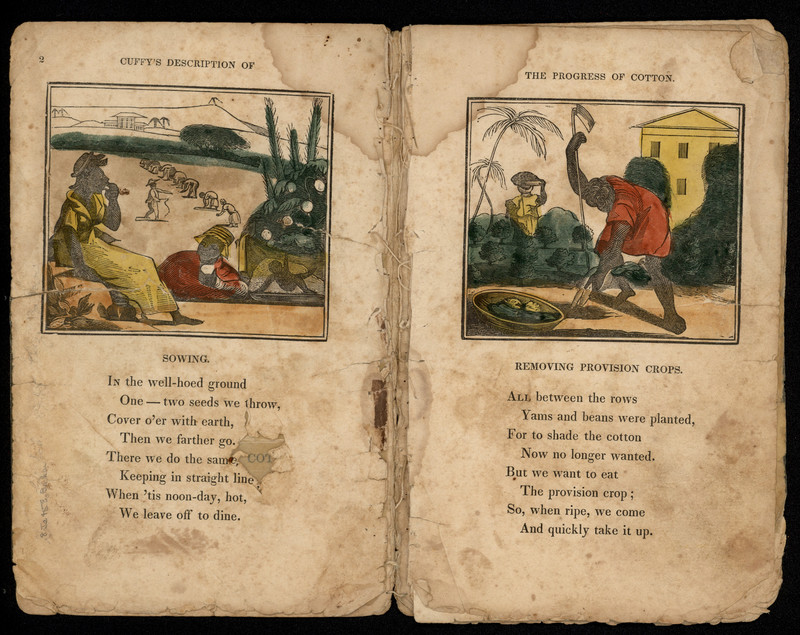 2
CUFFY'S DESCRIPTION OF
SOWING.
IN the well-hoed ground
One — two seeds we throw,
Cover o'er with earth,
Then we farther go.
There we do the same, COT
Keeping in straight line,
When 'tis noon-day, hot,
We leave off to dine.
THE PROGRESS OF COTTON.
REMOVING PROVISION CROPS.
ALL between the rows
Yams and beans were planted,
For to shade the cotton
Now no longer wanted.
But we want to eat
The provision crop;
So, when ripe, we come
And quickly take it up.